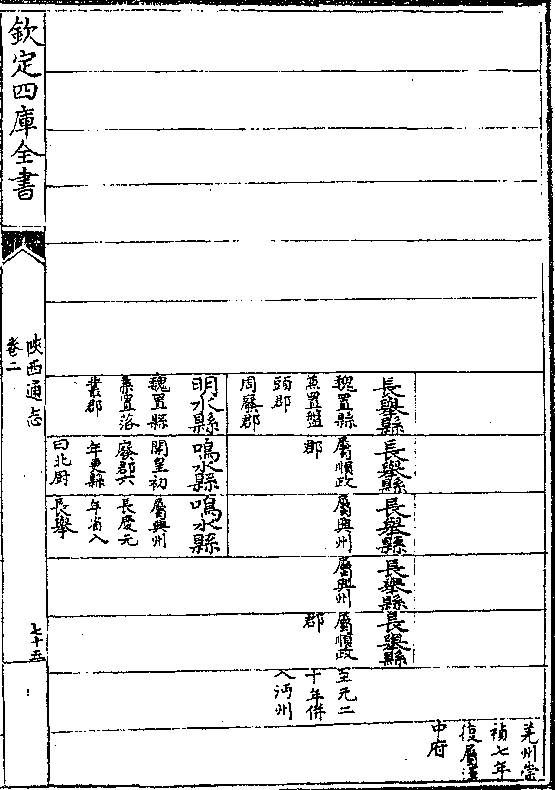 羌州崇
禎七年
復屬漢
中府
長舉縣
魏置縣
兼置盤
頭郡
周廢郡
長舉縣
屬順政
郡
長舉縣
屬興州
長舉縣
屬興州
長舉縣
屬順政
郡
至元二
十年併
入沔州
明水縣
魏置縣
兼置落
叢郡
鳴水縣
開皇初
廢郡六
年更縣
曰北厨
鳴水縣
屬興州
長慶元
年省入
長舉
欽定四庫全書
陝西通志
卷二
七十五